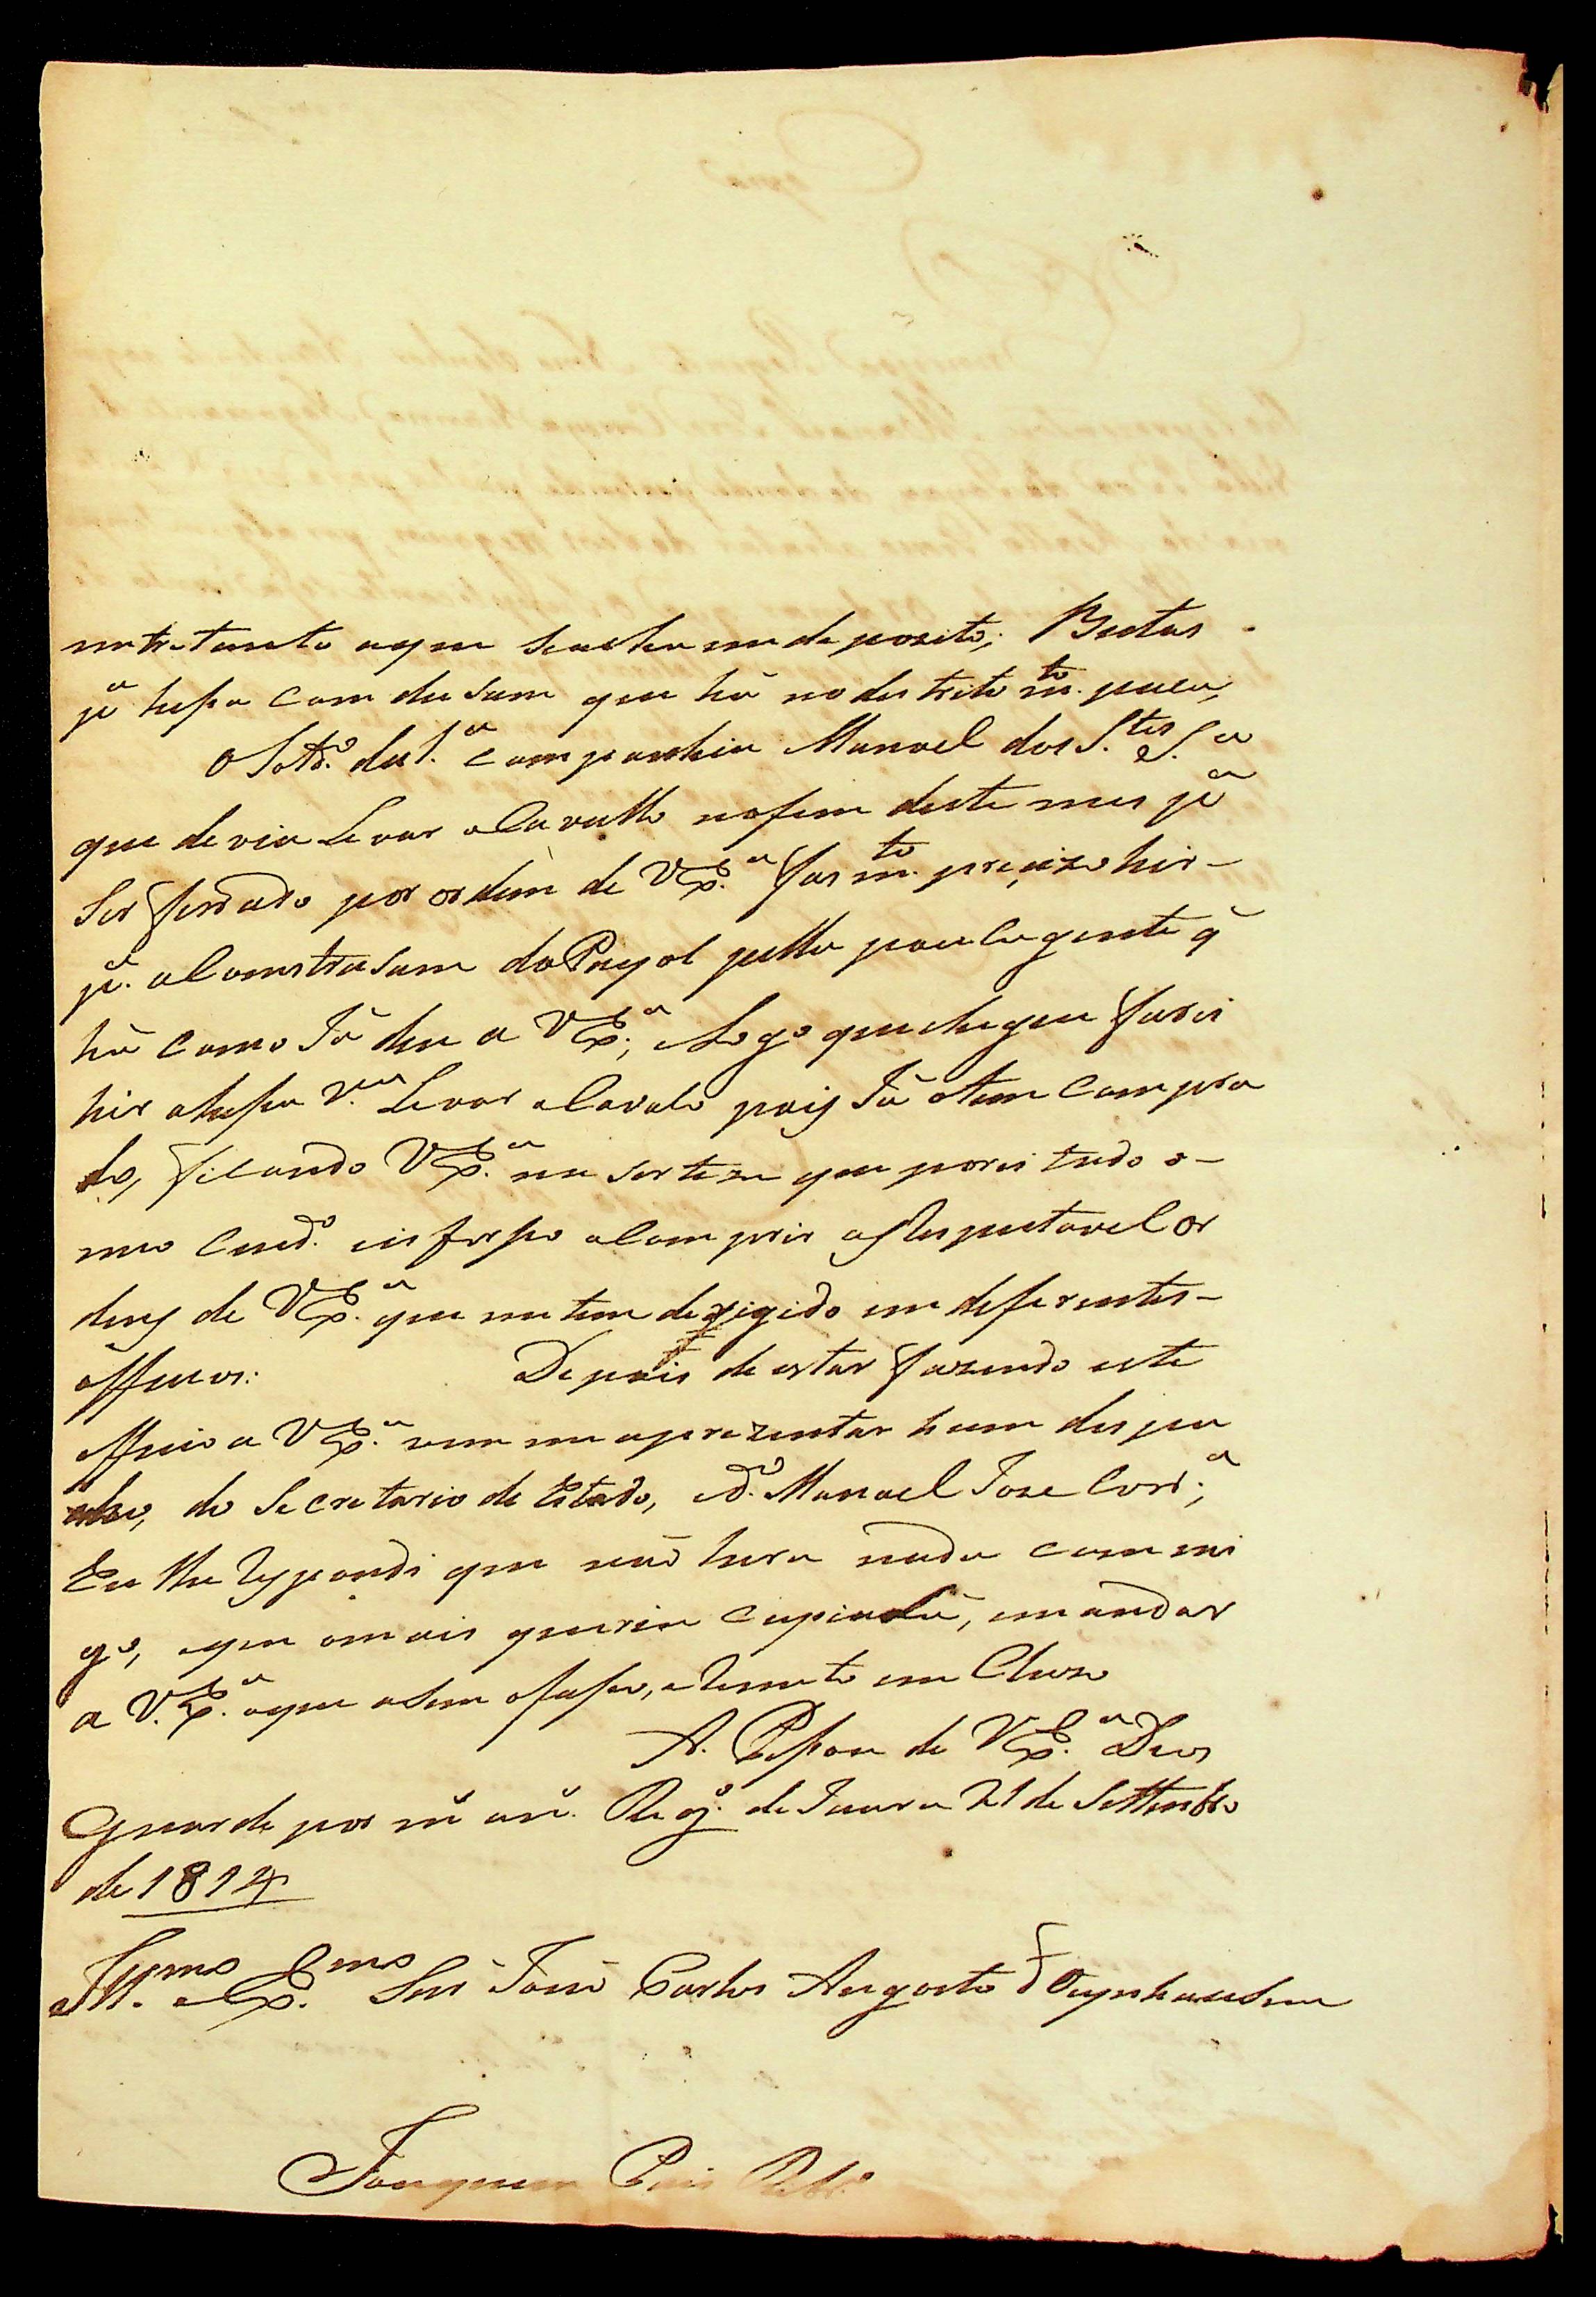 entretanto aqui se acha em depozito; Bestas
pª hesa condusam que há no destrito mto. pouca,
O Sold.º da 1.ª companhia Manoel dos S.tos S.ª
que devia Levar o Cavallo no fim deste mes pª
Ser ferrado por ordem de VEx.ª fas mto. precizo hir-
pª. a Comstrusam do Payol pella pouca gente q̃
há como Já dise a VEx.ª; e Logo que chegue farei
hir a hesa V.ª Levar o Cavalo pois Já o tem Compra
do, ficando VEx.ª na serteza que porei tudo o-
meu Cuid.º e isforso a Comprir as Respeitavel or
dens de VEx.ª que me tem derigido em deferentes-
officios: Depois de estar fazendo este
officio a VEx.ª vem me aprezentar hum despa
do Secretario de Estado, e d.º Manoel Joze Corr.ª;
Eu lhe Respondi que não hera nada commi
go, e que o mais queria Copialo, e mandar
a V.Ex.ª o que asim o faso, e Remeto em Cluzo
A. Pesoa de VEx.ª Deos
Guarde por m.ˢ an.ˢ Reg.º de Jauru 21 de Settembro
de 1814
Ill.mo e Ex.mo Snr̃ João Carlos Augosto d Oeynhausem
Joaquim Reb.º